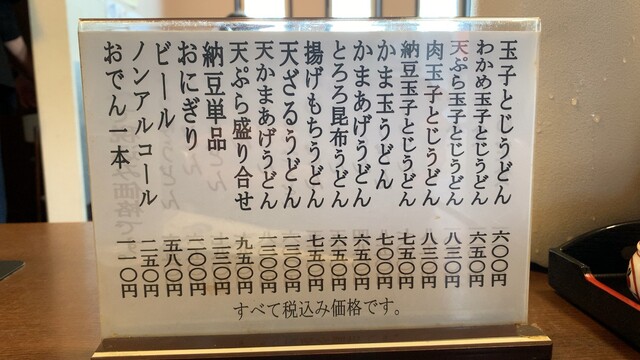 玉子とじうどん 六〇〇円
わかめ玉子とじうどん 六五〇円
天ぷら玉子とじうどん 八三〇円
肉玉子とじうどん 八三〇円
納豆玉子とじうどん 七五〇円
かま玉うどん 七〇〇円
かまあげうどん 六五〇円
とろろ昆布うどん 六五〇円
揚げもちうどん 七五〇円
天ざるうどん 一二〇〇円
天かまあげうどん 一二〇〇円
天ぷら盛り合せ 九五〇円
納豆単品 二三〇円
おにぎり 二〇〇円
ビール 五八〇円
ノンアルコール 二五〇円
おでん一本 一一〇円
すべて税込み価格です。